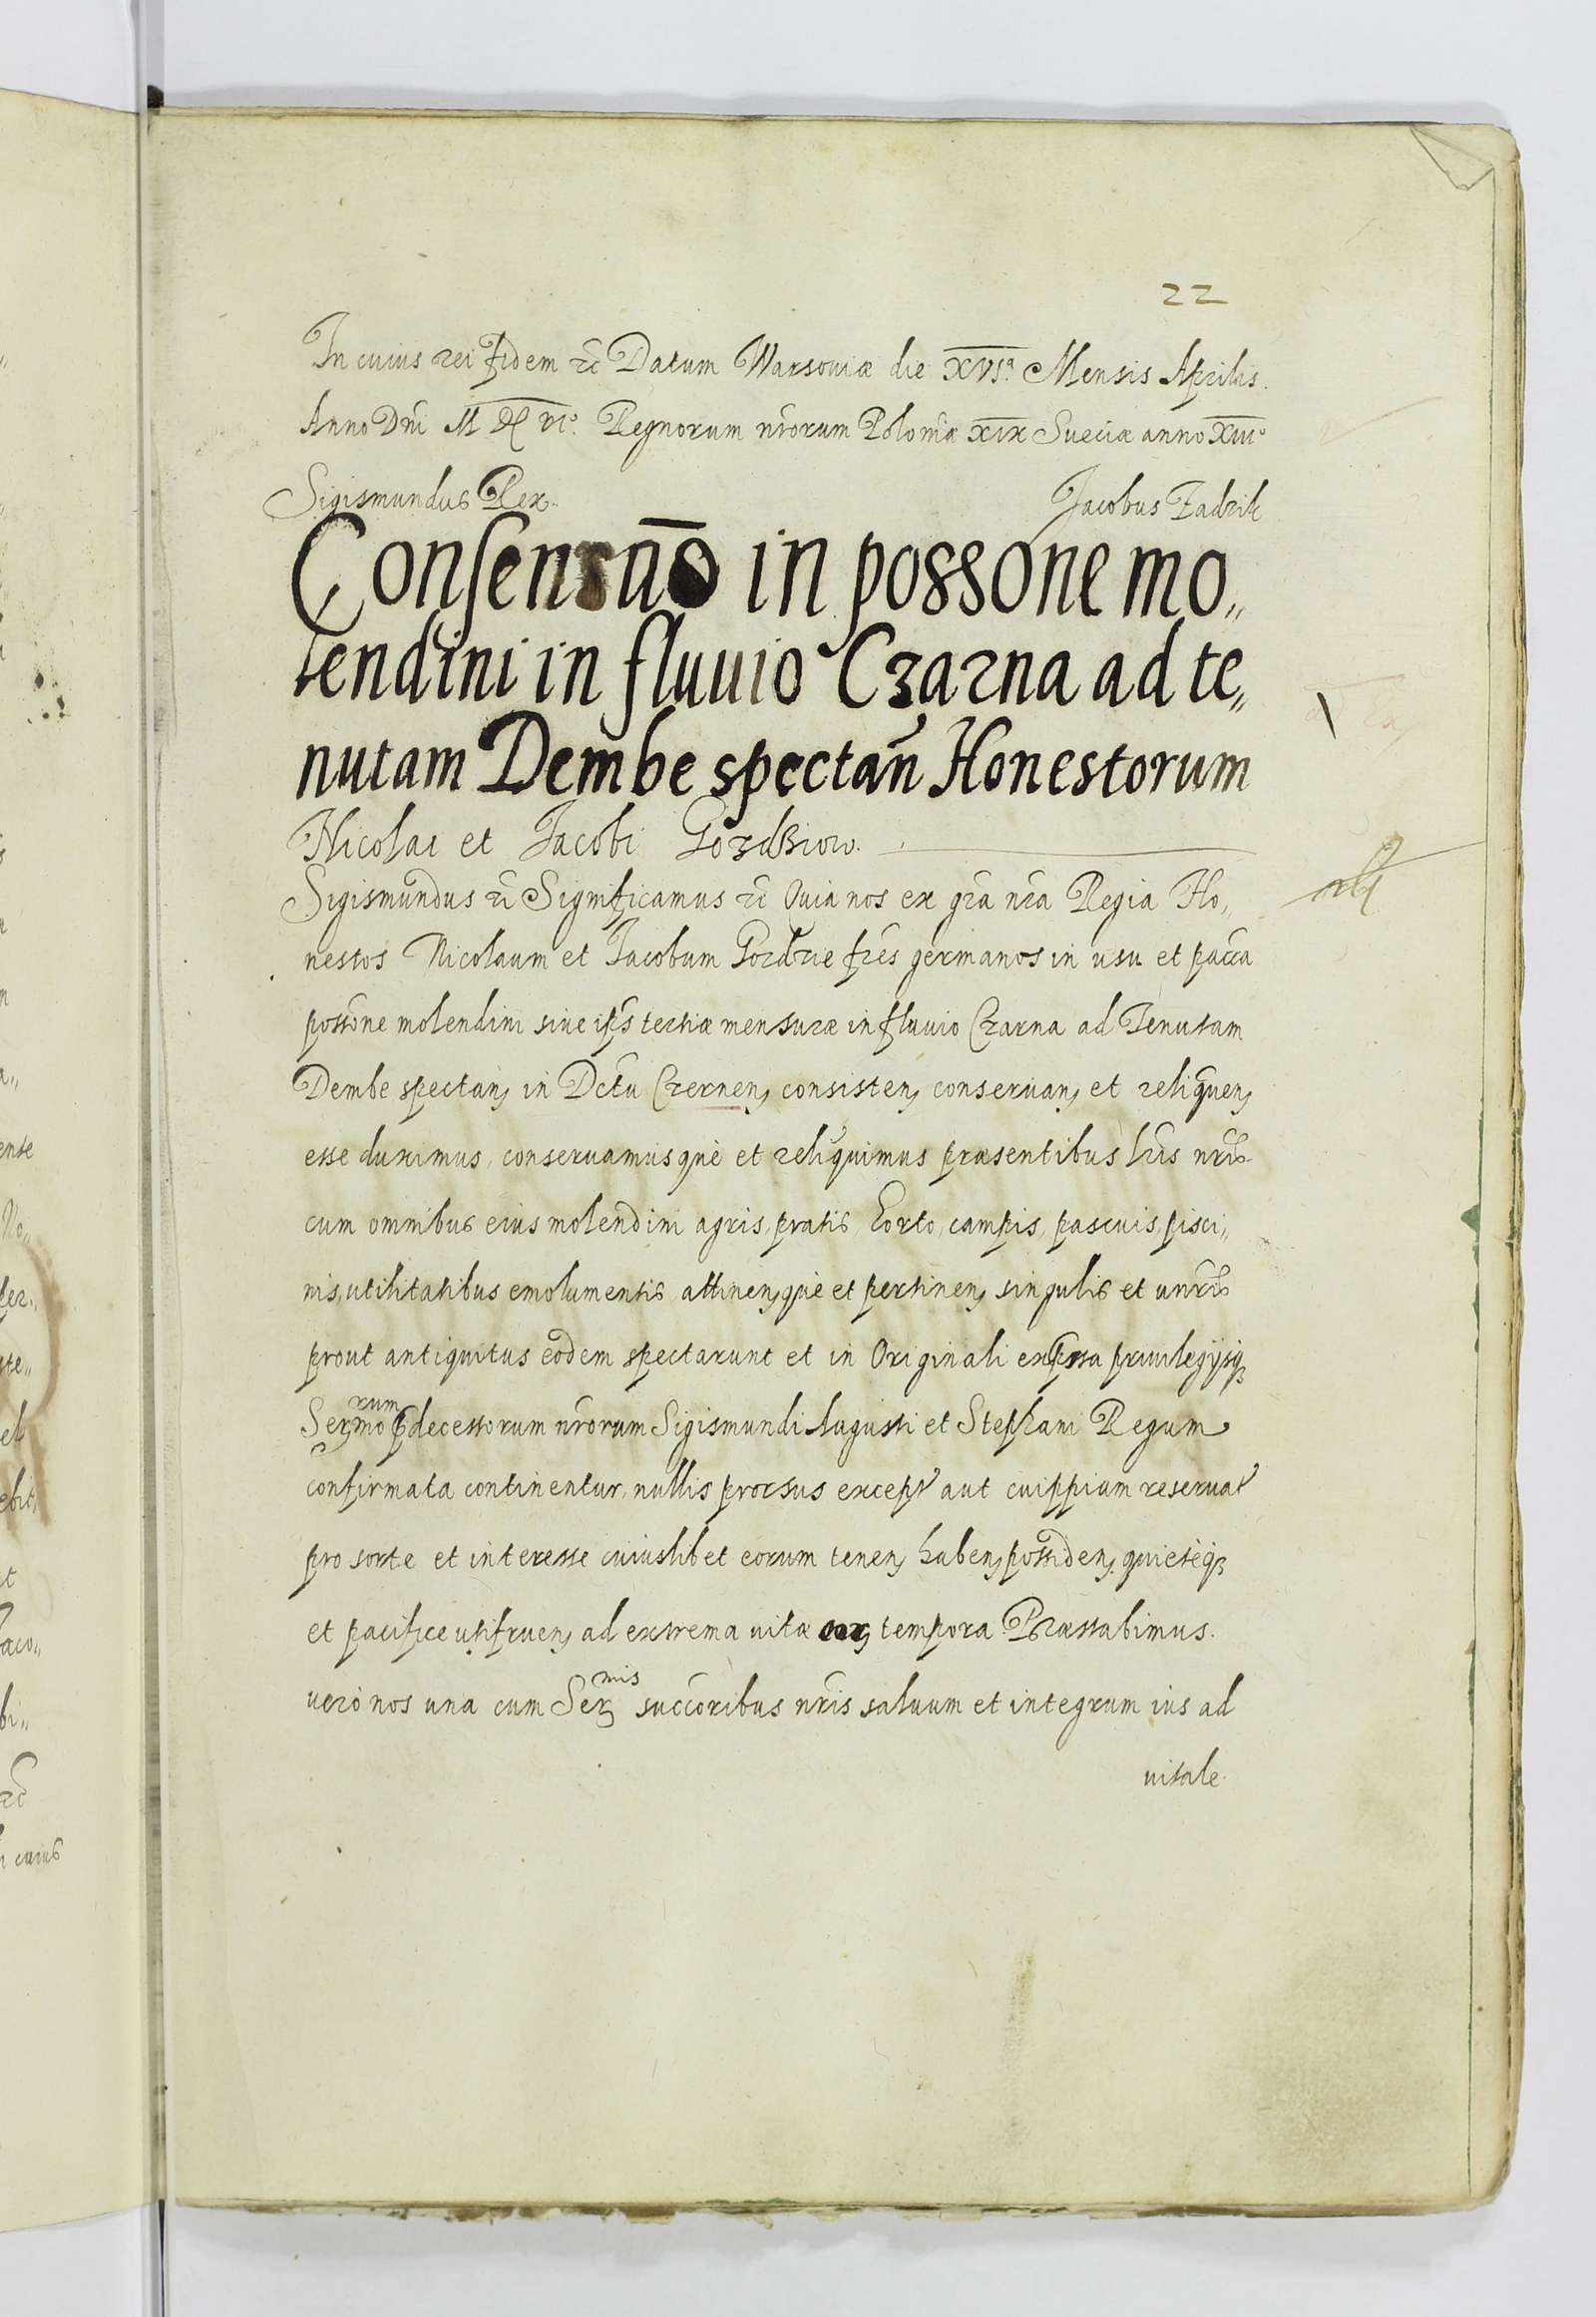 22
In cuius rei fidem &c Datum Warsouiæ die XVIª Mensis Aprilis.
Anno Dni M DC VI° Regnorum nrorum Poloniæ XIX Sueciæ anno XIII°
Sigismundus Rex. Jacobus Zadzik
Consensus in possone mo„
lendini in fluuio Czarna ad te„
nutam Dembe spectan Honestorum
Nicolai et Jacobi
Sigismundus &c Significamus &c Quia nos ex gra nra Regia Ho„
nestos Nicolaum et Jacobum fres germanos in usu et pacca
possone molendini siue ipis tertiæ mensuræ in fluuio Czarna ad Tenutam
Dembe spectan, in Dctu Czernen, consisten, conseruan, et reliquen,
esse duximus, conseruamusque et reliquimus præsentibus lris nris
cum omnibus eius molendini agris, pratis, horto, campis, pascuis, pisci„
nis, utilitatibus emolumentis attinen, que et pertinen, singulis et unris
prout antiquitus eodem spectarunt et in Originali expssa priuilegijsq3
Sermorum pdecessorum nrorum Sigismundi Augusti et Stephani Regum
confirmata continentur, nullis prorsus except aut cuippiam reseruat
pro sorte et interesse cuiuslibet eorum tenen, haben, possiden, quieteq3
et pacifice utifruen, ad extrema uitæ tempora. Præstabimus.
uero nos una cum Sermis succoribus nris saluum et integrum ius ad
uitale.